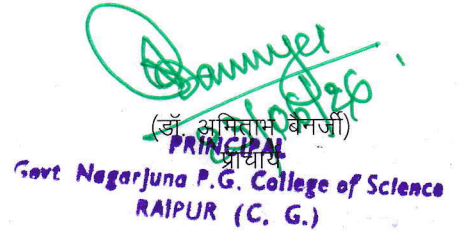 (डॉ. अमिताभ बैनर्जी)
PRINCIPAL
प्राचार्य
Govt Nagarjuna P.G. College of Science
RAIPUR (C. G.)